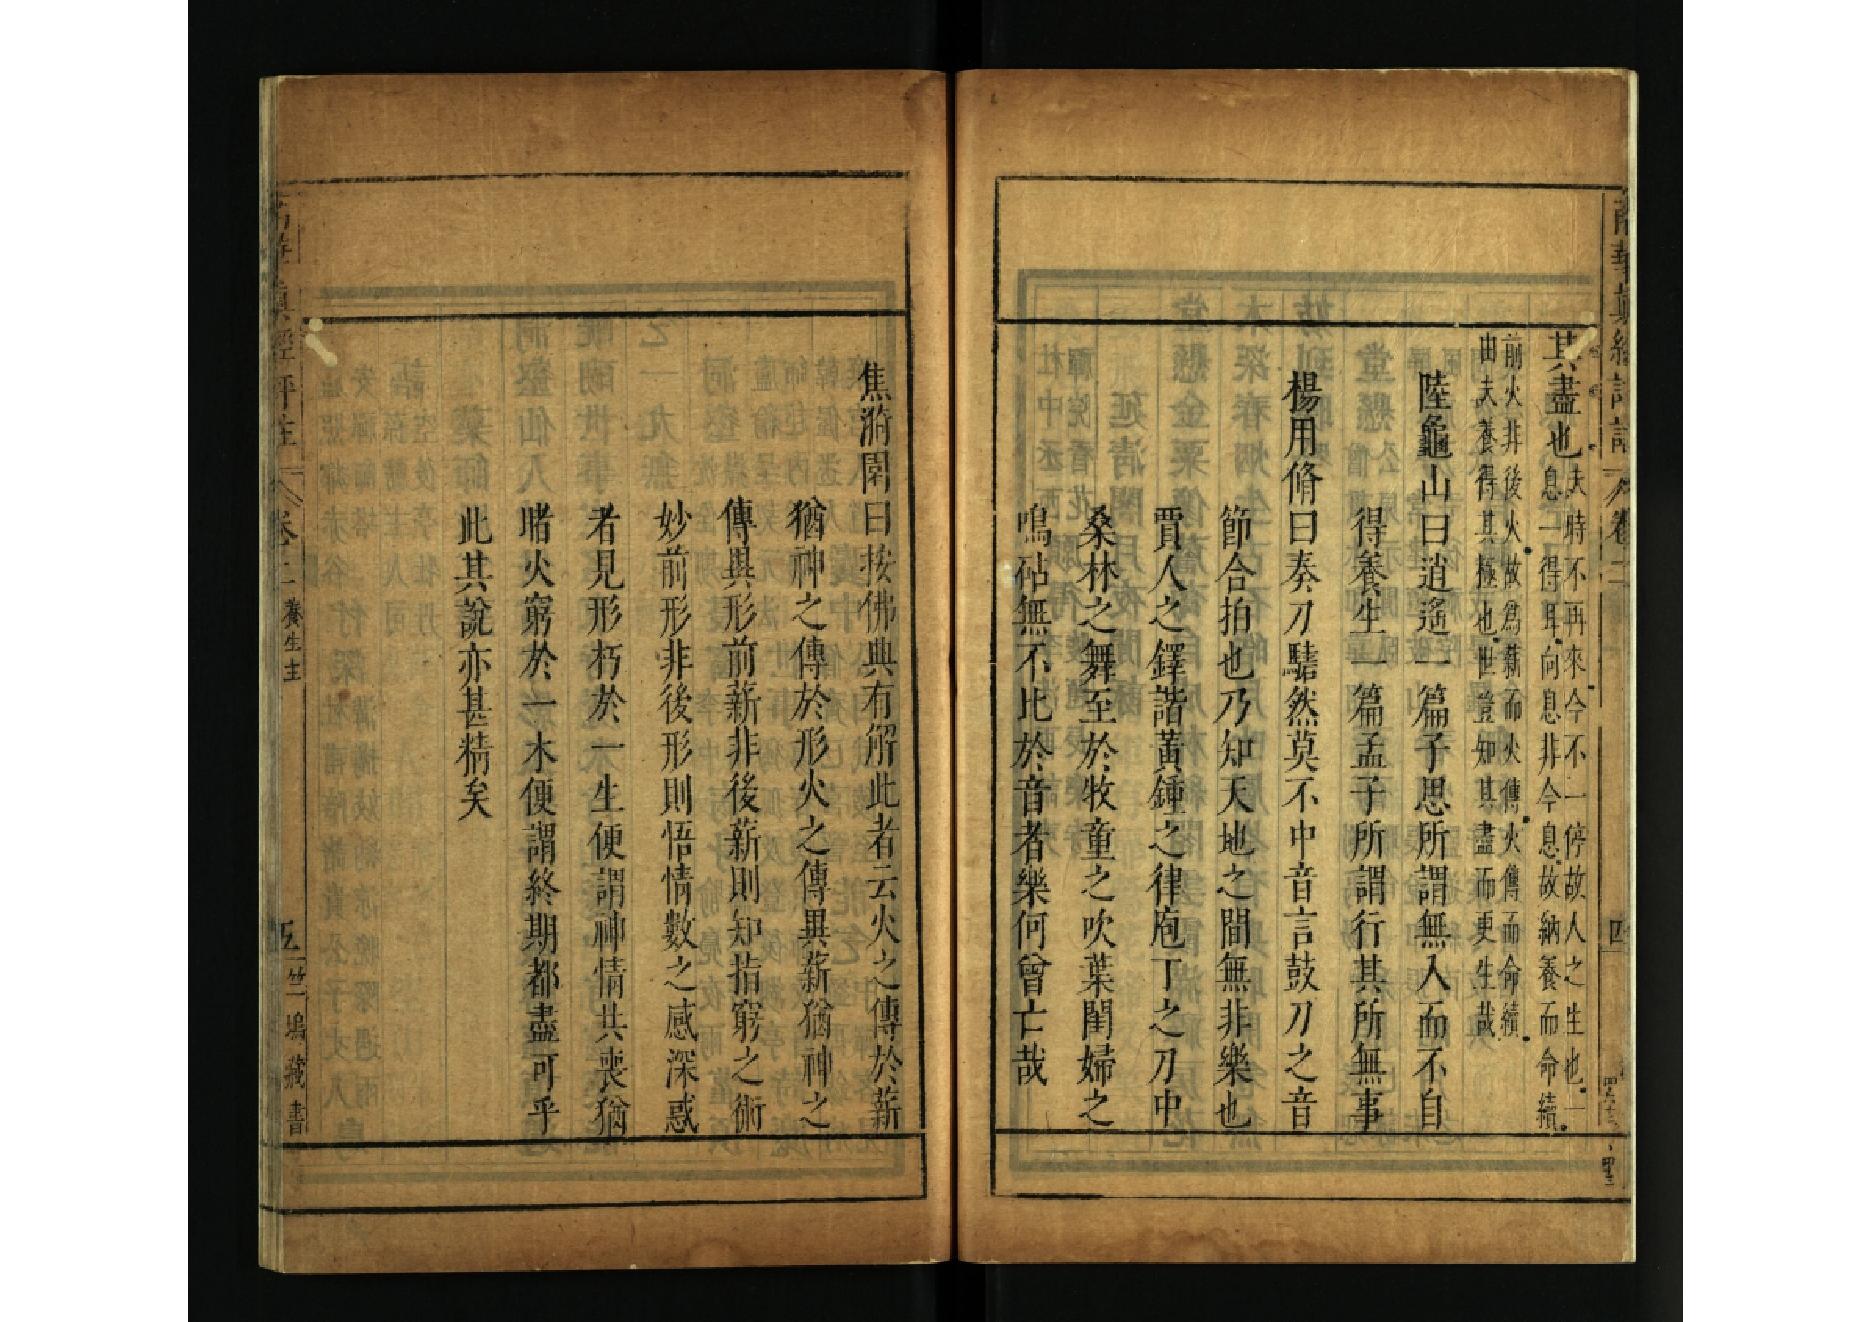 南華真經評註 卷二 四
其盡也
夫時不再來今不一停故人之生也一
息一得耳向息非今息故納養而命續
前火非後火故爲薪而火傳火傳而命續
由夫養得其極也世豈知其盡而更生哉
陸龜山曰逍遙一篇子思所謂無入而不自
得養生一篇孟子所謂行其所無事
楊用脩曰奏刀騞然莫不中音言鼓刀之音
節合拍也乃知天地之間無非樂也
賈人之鐸諧黃鍾之律庖丁之刀中
桑林之舞至於牧童之吹葉閨婦之
鳴砧無不比於音者樂何曾亡哉
焦漪園曰按佛典有解此者云火之傳於薪
猶神之傳於形火之傳異薪猶神之
傳異形前薪非後薪則知指窮之術
妙前形非後形則悟情數之感深惑
者見形朽於一生便謂神情共喪猶
睹火窮於一木便謂終期都盡可乎
此其說亦甚精矣
真經評註 卷二 養生主 五 竺塢藏書